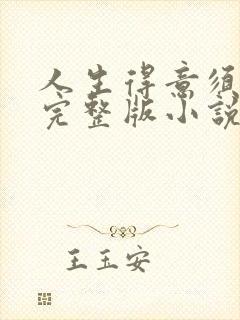 人生得意须
完整版小説
王玉安